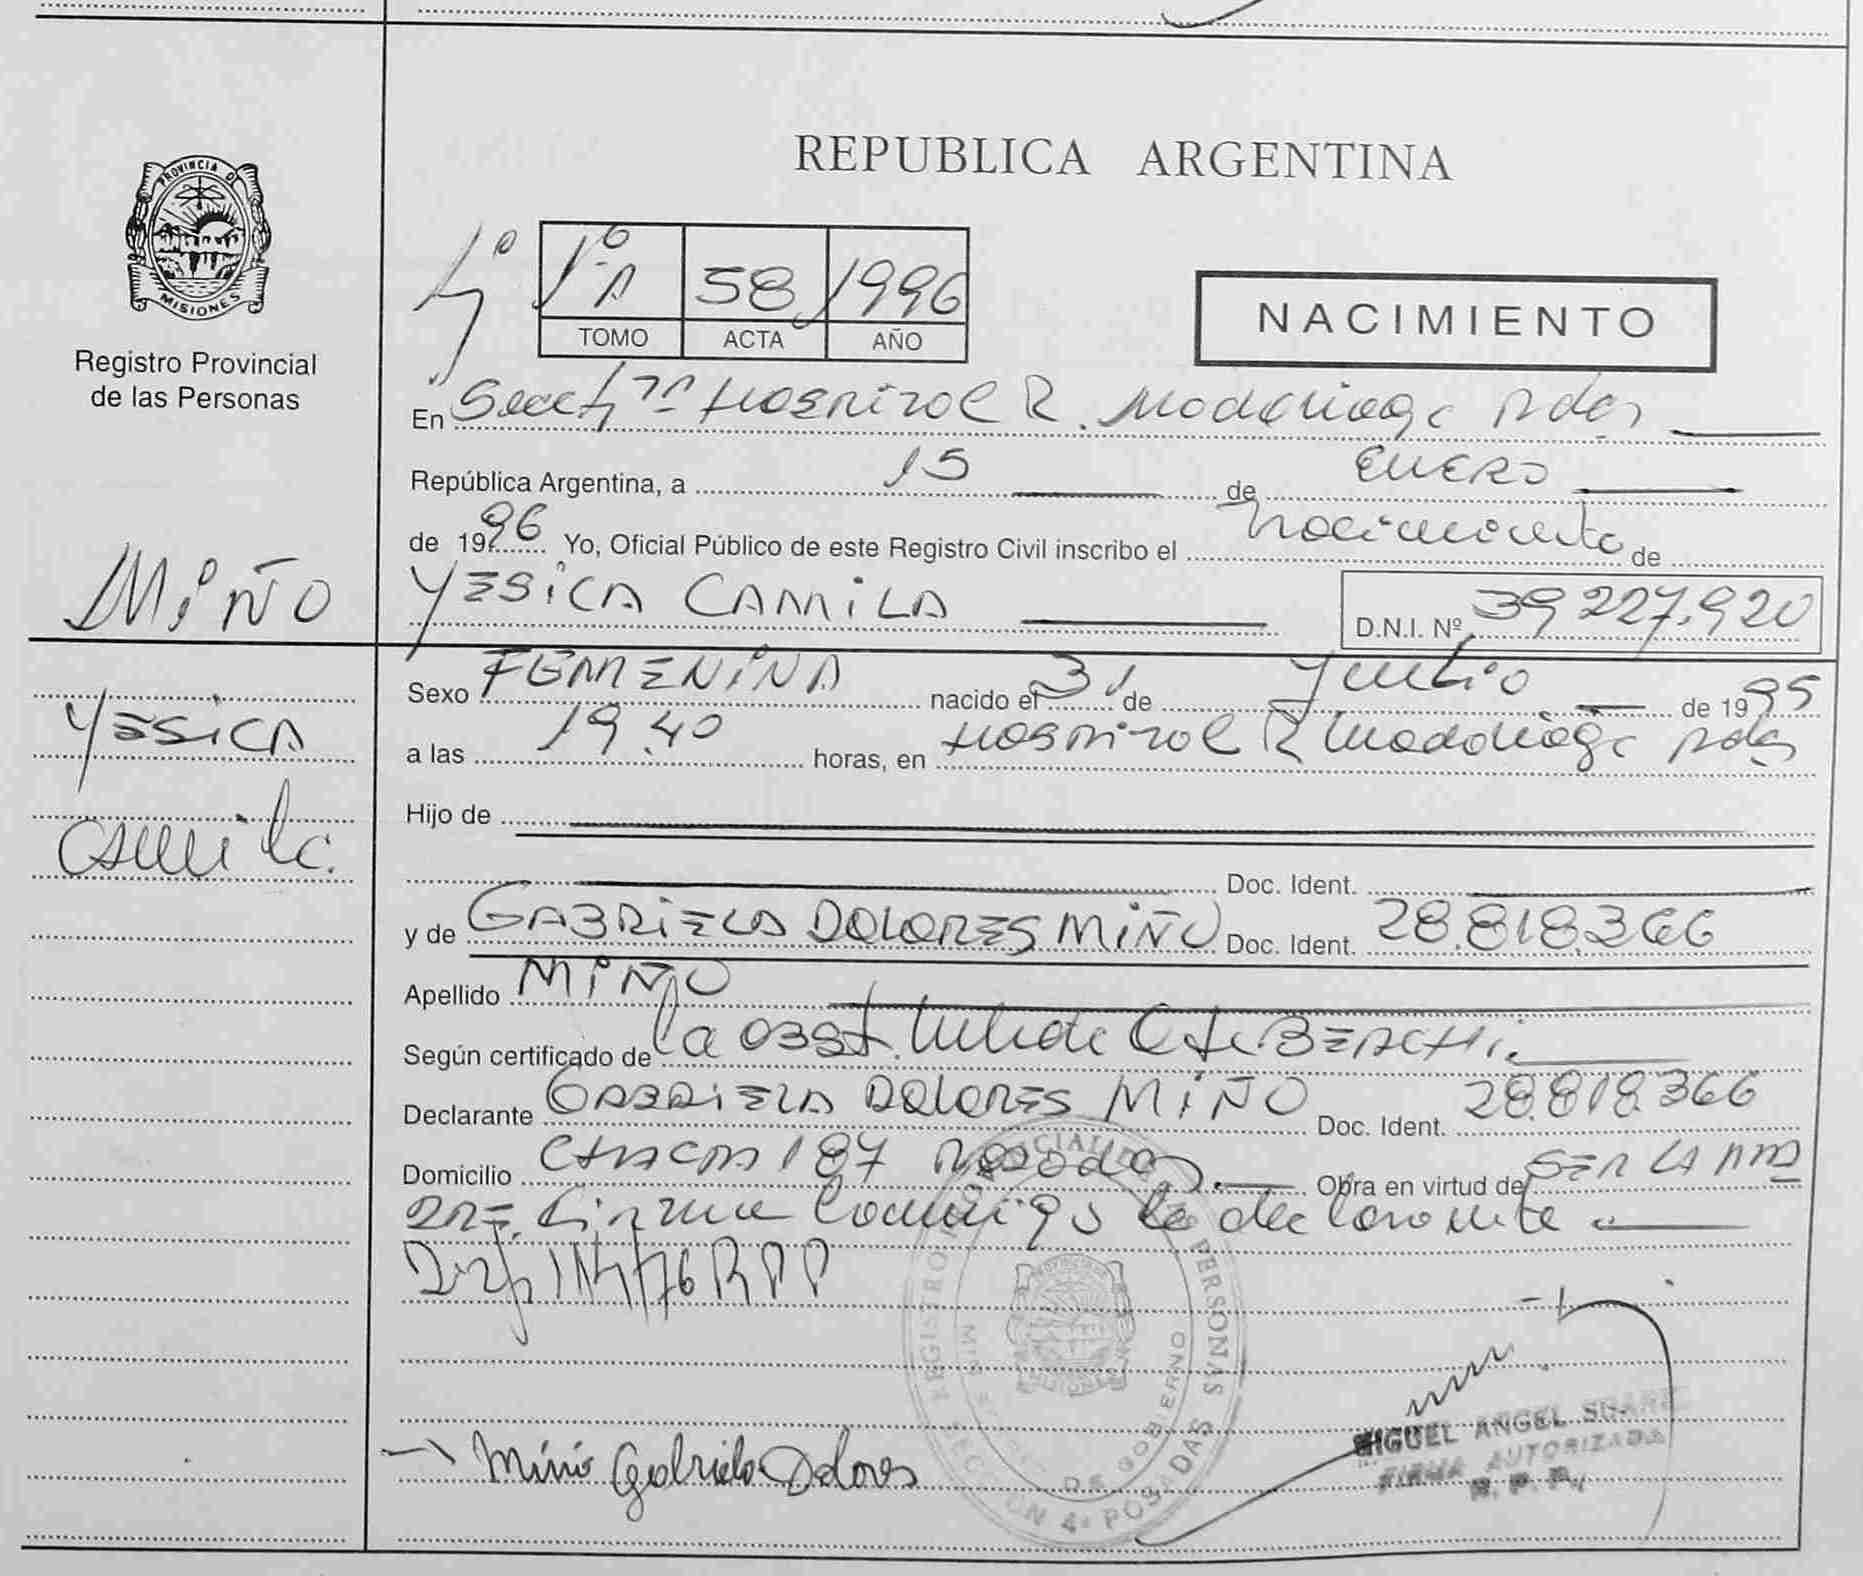 REPUBLICA ARGENTINA
PROVINCIA D
MISIONES
Registro Provincial
de las Personas
4º 1º A 58 1996
TOMO ACTA AÑO
NACIMIENTO
En Secc 4ª Hospital R. Madariaga Pdas
República Argentina, a 15 de ENERO
de 1996 Yo, Oficial Público de este Registro Civil inscribo el nacimiento de
MIÑO
YESICA CAMILA
D.N.I. Nº 39.227.920
Sexo FEMENINA nacido el 31 de Julio de 1995
YESICA
a las 19.40 horas, en Hospital R Madariaga Pdas
Hijo de
Camila.
Doc. Ident.
y de GABRIELA DOLORES MIÑO Doc. Ident. 28.818.366
Apellido MIÑO
Según certificado de la obst.
Declarante GABRIELA DOLORES MIÑO Doc. Ident. 28.818.366
Domicilio 187 Posadas. Obra en virtud de SER LA MA
DRE. Firma conmigo la declarante
REGISTRO PERSONAS
DE GOBIERNO
SECCION 4ª POSADAS
Miño Gabriela Dolores
MIGUEL ANGEL SUAREZ
FIRMA AUTORIZADA
R. P. P.